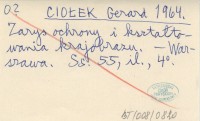 02 CIOŁEK Gerard 1964.
Zarys ochrony i kształto-
wania krajobrazu. — War-
szawa. Ss. 55, il., 4°.